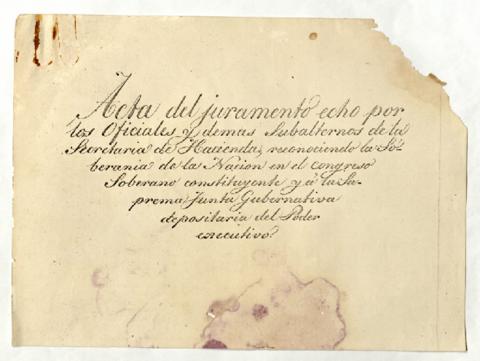 Acta del juramento echo por
los Oficiales y demas Subalternos de la
Secretaria de Hacienda, reconociendo la So-
berania de la Nacion en el congreso
Soberano constituyente y á la Su-
prema Junta Gubernativa
depositaria del Poder
executivo.